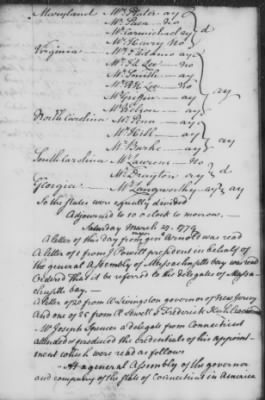 Maryland Mr Plater ay
Mr Paca no
Mr Carmichael ay d
Mr Henry no
Virginia Mr T Adams ay
Mr F L Lee no
Mr Smith ay
Mr R H Lee no ay
Mr Griffin ay
Mr Nelson ay
North Carolina Mr Penn ay
Mr Hill ay ay
Mr Burke ay
South Carolina Mr Laurens no
Mr Drayton ay d
Georgia Mr Langworthy ay ay
So the states were equally divided
Adjourned to 10 o Clock to morrow.
Saturday March 27. 1779
A letter of this day from major gen Arnold was read
A letter of 1 from J Powell president in behalf of
the general Assembly of Massachusetts bay was read
Ordered That it be referred to the delegates of Massa-
chusetts bay.
A letter of 20 from W Livingston governor of New Jersey
And one of 25 from A Sewell & Frederick were read
Mr Joseph Spencer a delegate from Connecticut
attended & produced the credentials of his appoint-
ment which were read as follows
At a general Assembly of the governor
and company of the state of Connecticut in America